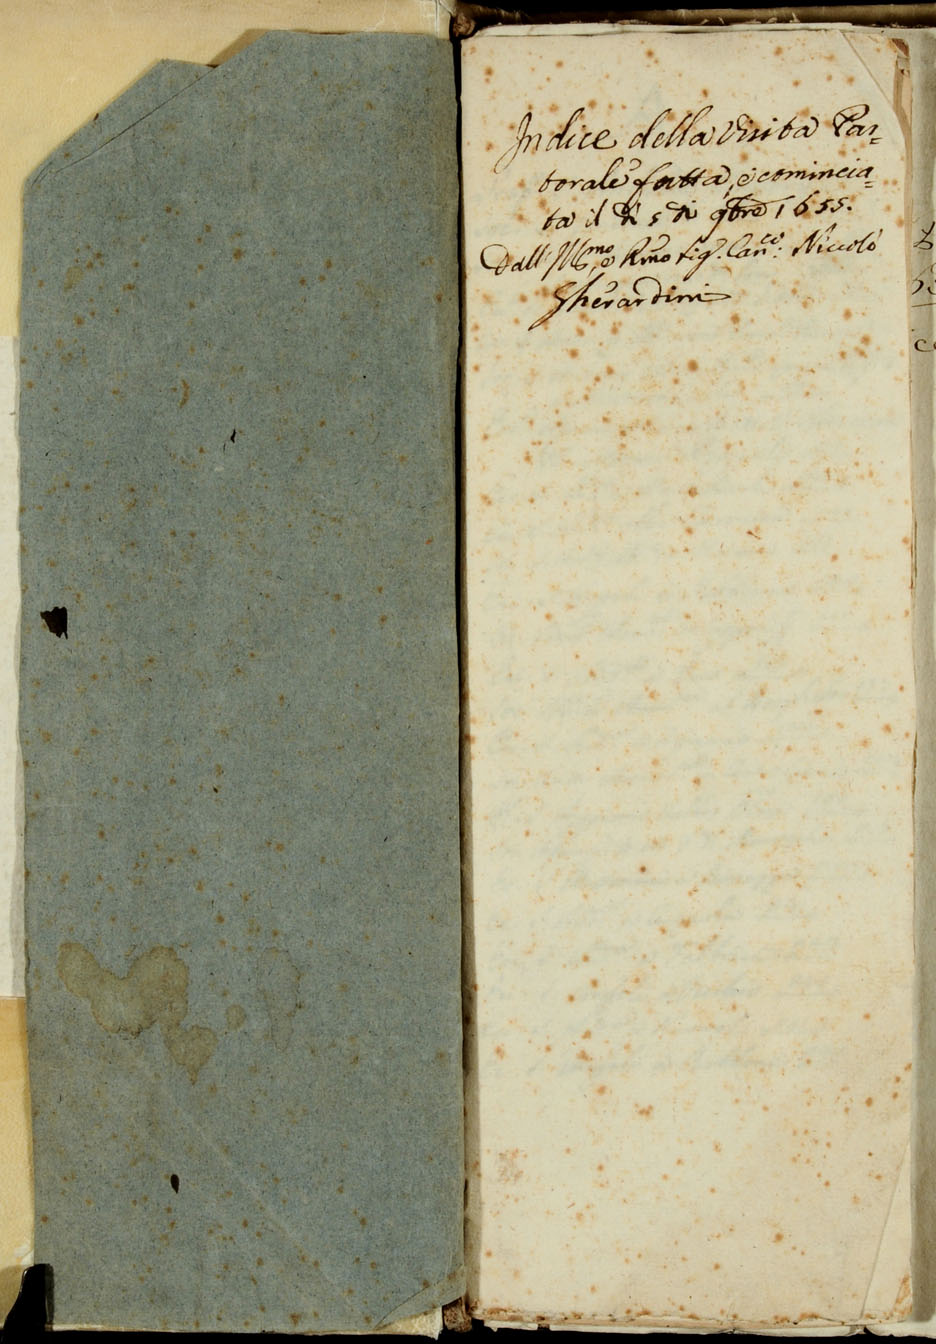 Indice della Visita Pas=
torale fatta, e comincia=
ta il dì 5 di 9bre 1655.
Dall' Ill.mo, e R.mo Sig.r Can.co: Niccolò
Gherardini